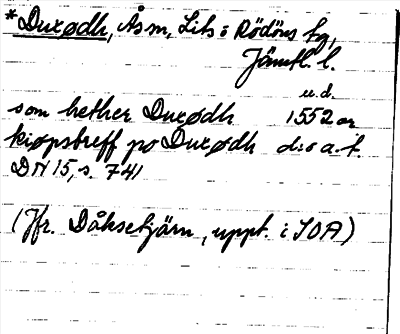 *Duxødh, Ås sn, Lits o Rödöns tg,
Jämtl. l.
u.d.
som hether Duxødh 1552 or
kiøpsbreff po Duxødh d:o a.t.
DN 15, s. 741
(Jfr. Dåksetjärn, uppt. i SOA)